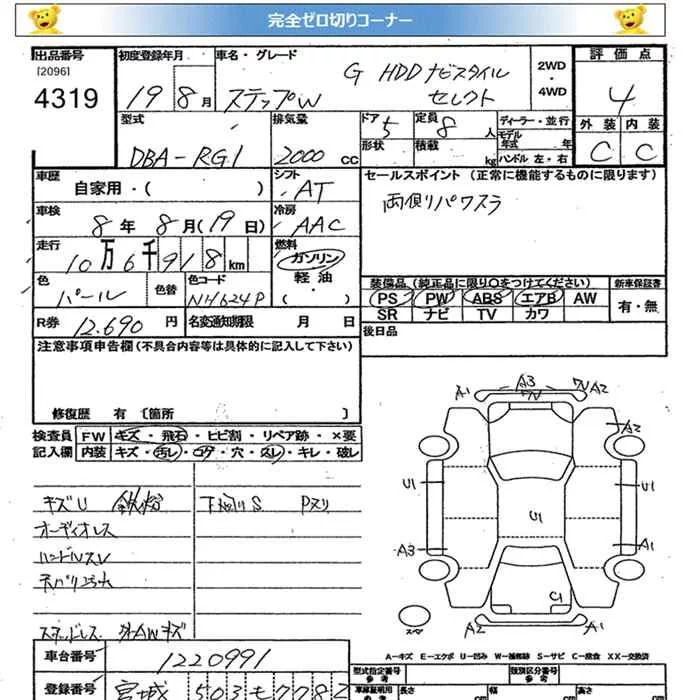 完全ゼロ切りコーナー
出品番号
[2096]
4319
初度登録年月
19 8月
車名・グレード
G HDDナビスタイル
ステップW セレクト
2WD
・
4WD
評価点
4
外装 内装
C C
型式
DBA-RG1
排気量
2000 cc
ドア 5
形状
定員 8 人
積載 kg
ディーラー・並行
モデル年式 年
ハンドル 左・右
車歴
自家用・( )
シフト
AT
セールスポイント (正常に機能するものに限ります)
両側リパワスラ
車検
8年 8月(19日)
冷房
AAC
走行
10万6千918km
燃料
ガソリン
軽油
・( )
色
パール
色替
色コード
NH624P
装備品 (純正品に限り○をつけてください)
PS PW ABS エアB AW
SR ナビ TV カワ
新車保証書
有・無
R券 12.690 円
名変通知期限 月 日
後日品
注意事項申告欄(不具合内容等は具体的に記入して下さい)
修復歴 有 〔箇所 〕
検査員
記入欄
FW キズ・飛石・ヒビ割・リペア跡・×要
内装 キズ・汚レ・コゲ・穴・スレ・キレ・破レ
キズU
下廻りS Pヌリ
オーディオレス
ハンドルスレ
スタッドレス
A1 A3 W A2
A2
U1 U1
U1
A3 A1
C1
スペア
A2 A1
A-キズ E-エクボ U-凹み W-補修跡 S-サビ C-腐食 XX-交換済
車台番号
1220991
登録番号
宮城 503 も 7782
型式指定番号
参考
類別区分番号
参考
車庫証明用
長さ cm
幅 cm
高さ cm